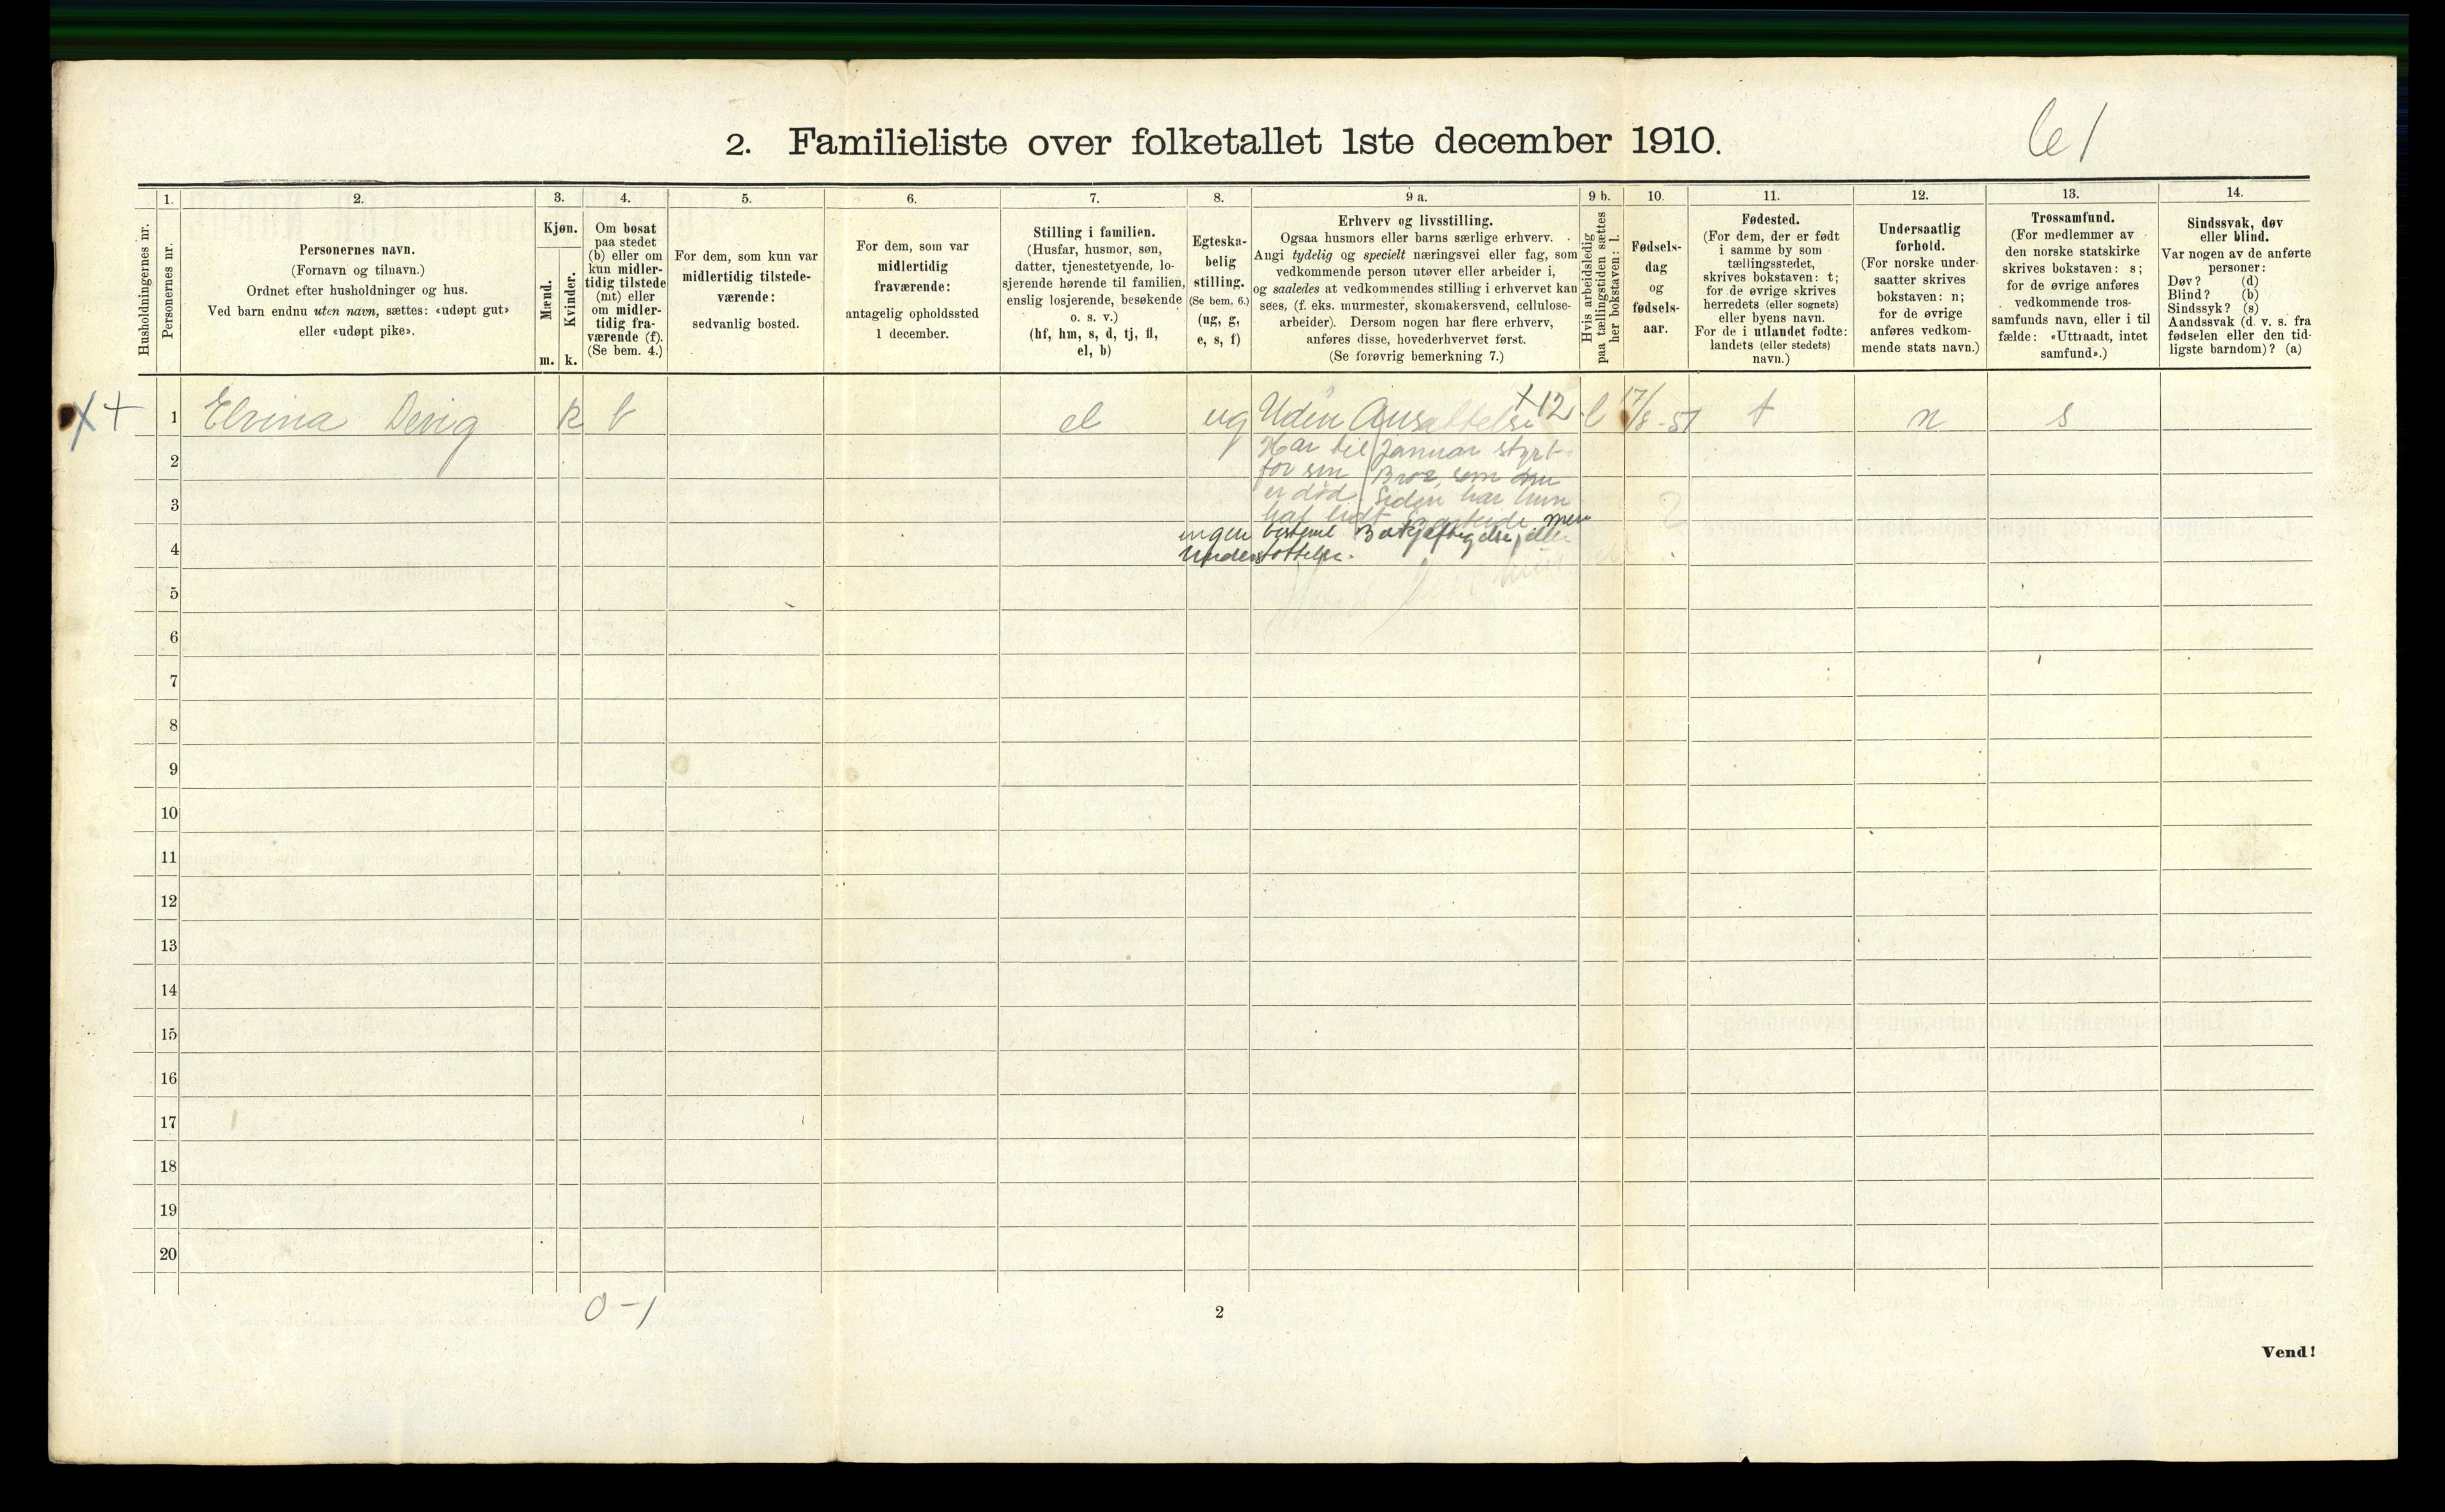 2. Familieliste over folketallet 1ste december 1910.
61
Husholdningernes nr.
1.
Personernes nr.
2.
Personernes navn.
(Fornavn og tilnavn.)
Ordnet efter husholdninger og hus.
Ved barn endnu uten navn, sættes: «udøpt gut»
eller «udøpt pike».
3.
Kjøn.
Mænd.
m.
Kvinder.
k.
4.
Om bosat
paa stedet
(b) eller om
kun midler-
tidig tilstede
(mt) eller
om midler-
tidig fra-
værende (f).
(Se bem. 4.)
5.
For dem, som kun var
midlertidig tilstede-
værende:
sedvanlig bosted.
6.
For dem, som var
midlertidig
fraværende:
antagelig opholdssted
1 december.
7.
Stilling i familien.
(Husfar, husmor, søn,
datter, tjenestetyende, lo-
sjerende hørende til familien,
enslig losjerende, besøkende
o. s. v.)
(hf, hm, s, d, tj, fl,
el, b)
8.
Egteska-
belig
stilling.
(Se bem. 6.)
(ug, g,
e, s, f)
9 a.
Erhverv og livsstilling.
Ogsaa husmors eller barns særlige erhverv.
Angi tydelig og specielt næringsvei eller fag, som
vedkommende person utøver eller arbeider i,
og saaledes at vedkommendes stilling i erhvervet kan
sees, (f. eks. murmester, skomakersvend, cellulose-
arbeider). Dersom nogen har flere erhverv,
anføres disse, hovederhvervet først.
(Se forøvrig bemerkning 7.)
9 b.
Hvis arbeidsledig
paa tællingstiden sættes
her bokstaven: l.
10.
Fødsels-
dag
og
fødsels-
aar.
11.
Fødested.
(For dem, der er født
i samme by som
tællingsstedet,
skrives bokstaven: t;
for de øvrige skrives
herredets (eller sognets)
eller byens navn.
For de i utlandet fødte:
landets (eller stedets)
navn.)
12.
Undersaatlig
forhold.
(For norske under-
saatter skrives
bokstaven: n;
for de øvrige
anføres vedkom-
mende stats navn.)
13.
Trossamfund.
(For medlemmer av
den norske statskirke
skrives bokstaven: s;
for de øvrige anføres
vedkommende tros-
samfunds navn, eller i til
fælde: «Uttraadt, intet
samfund».)
14.
Sindssvak, døv
eller blind.
Var nogen av de anførte
personer:
Døv? (d)
Blind? (b)
Sindssyk? (s)
Aandssvak (d. v. s. fra
fødselen eller den tid-
ligste barndom)? (a)
X + 1 Elvina Devig k b el ug Uden Ansættelse +12 l 17/8-51 t n s
Har til Januar styrt
for sin Bror, som nu
er død. Siden har hun
hat lidt men
ingen bestemt Beskjæftigelse, eller
Understøttelse.
2
3
4
5
6
7
8
9
10
11
12
13
14
15
16
17
18
19
20
0-1
2
Vend!